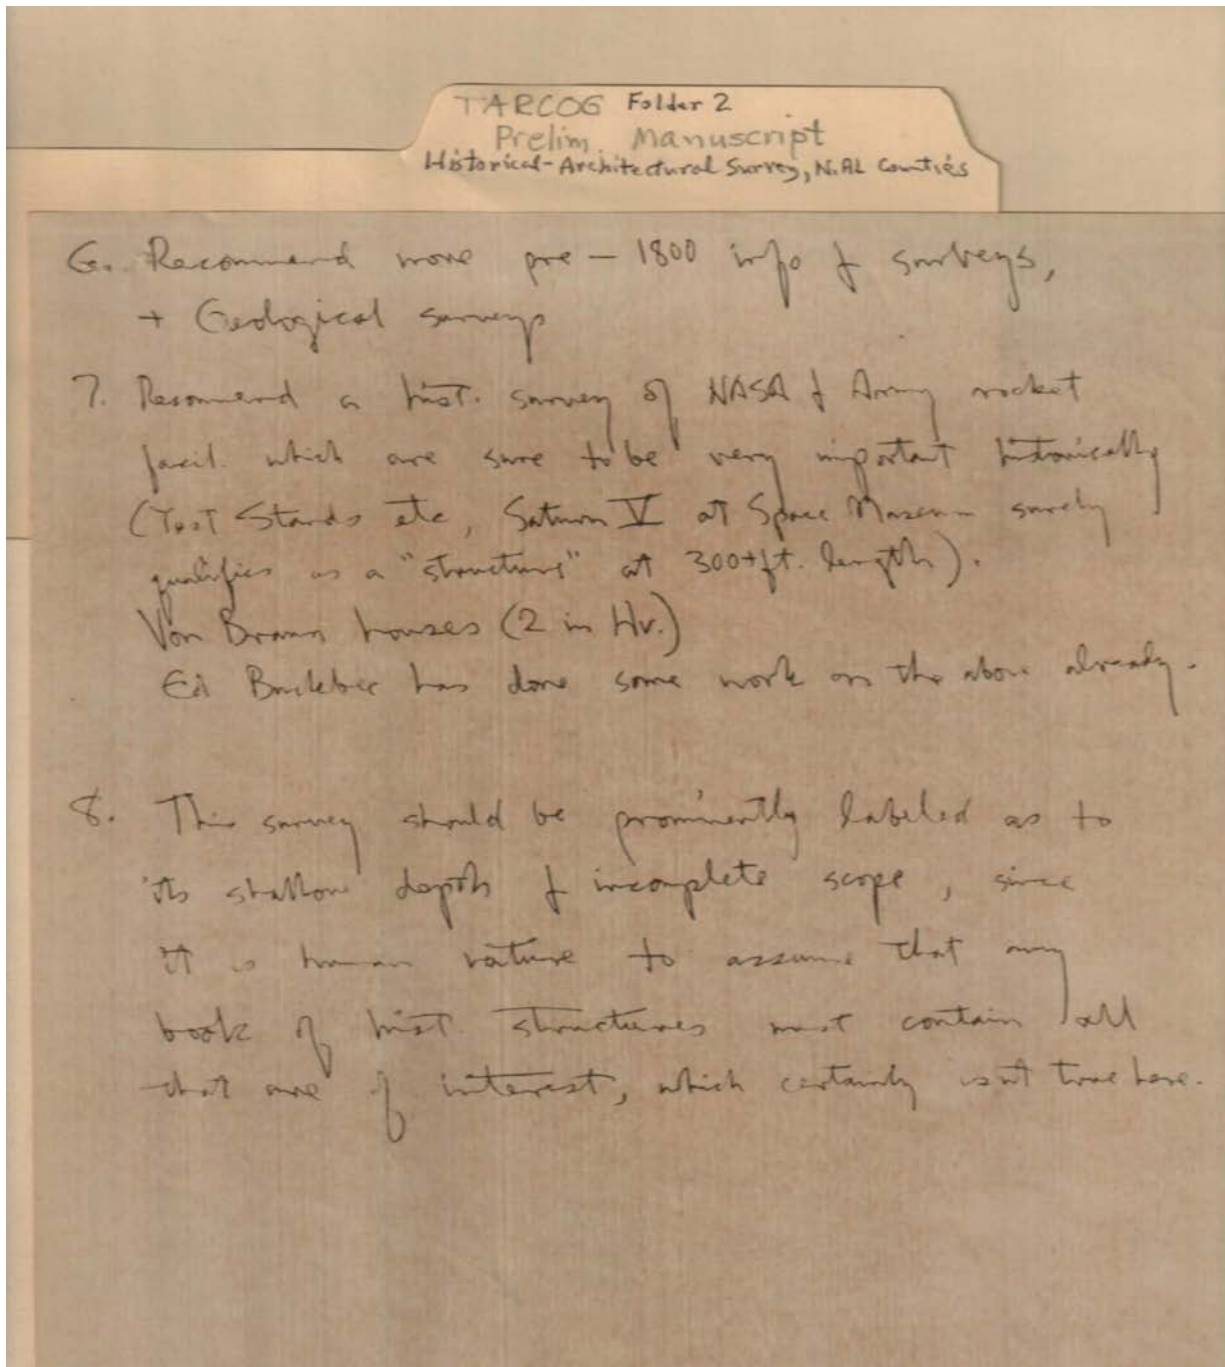 TARCOG Folder 2
Prelim. Manuscript
Historical-Architectural Survey, N. AL Counties
6. Recommend more pre-1800 info & surveys,
+ Geological surveys
7. Recommend a hist. survey of NASA & Army rocket
facil. which are sure to be very important historically
(Test Stands etc, Saturn V at Space Museum surely
qualifies as a "structure" at 300+ft. length).
Von Braun houses (2 in Hv.)
Ed Buckbee has done some work on the above already.
8. This survey should be prominently labeled as to
its shallow depth & incomplete scope, since
it is human nature to assume that any
book of hist structures must contain all
that are of interest, which certainly isn't true here.